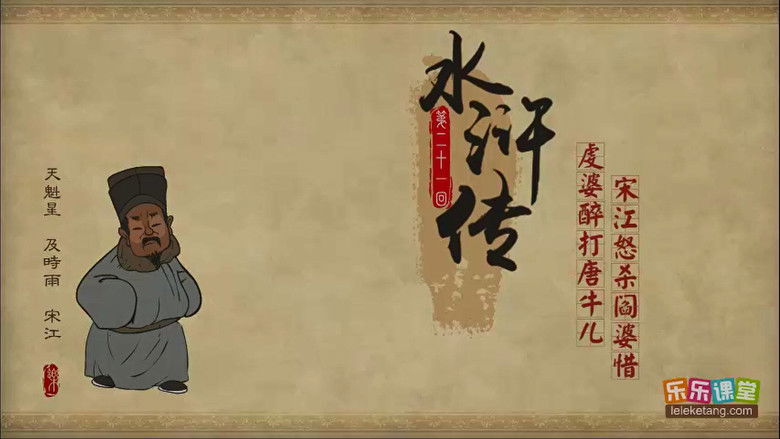 水浒传
第二十一回
虔婆醉打唐牛儿
宋江怒杀阎婆惜
天魁星 及時雨 宋江
乐乐课堂
leleketang.com